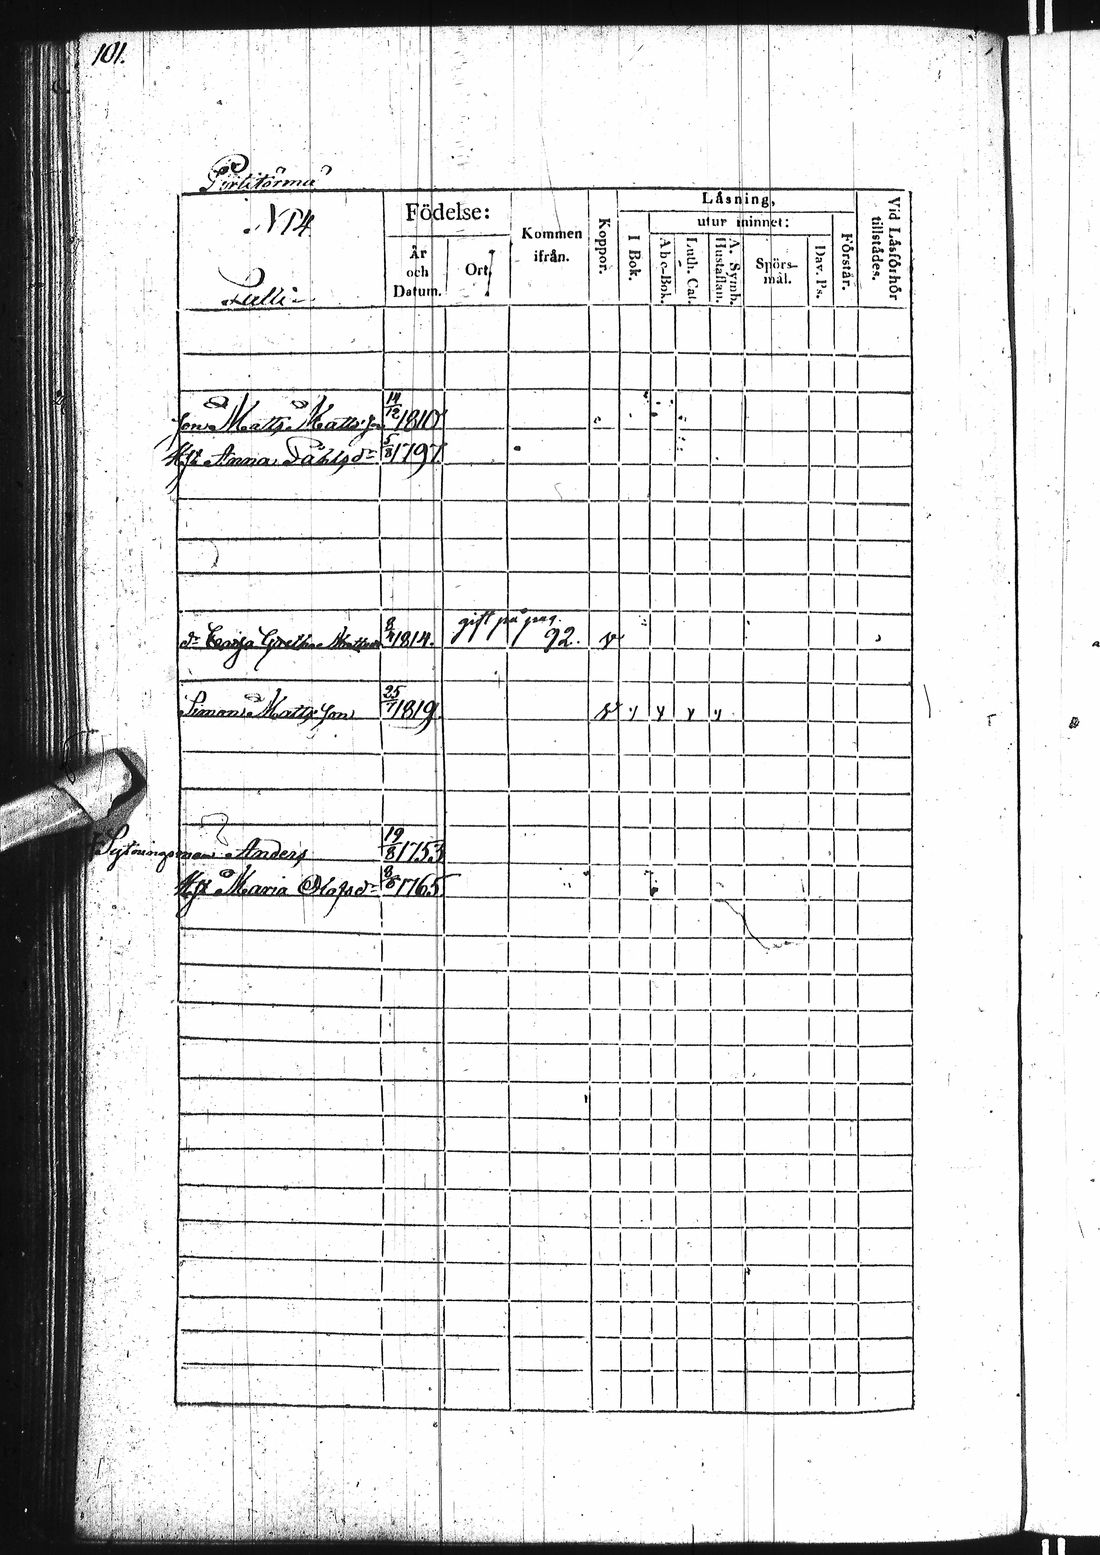 101.
Pertitörmä
N 14
Lulli
Födelse:
År och Datum.
Ort.
Kommen ifrån.
Koppor.
Låsning,
utur minnet:
I Bok.
Abc-Bok.
Luth. Cat.
A. Symb. Hustaflan.
Spörs-mål.
Dav. Ps.
Förstår.
Vid Låsförhör tillstådes.
Son Matts Matts son 14/12 1810
H:u Anna Påhlsdr 5/8 1797
dr Caisa Gretha 8/4 1814. gift på pag. 92. v
Simon Matts son 25/7 1819 v y y y y
Sytningsman Anders 19/8 1753
H:u Maria Olofsdr 8/8 1765